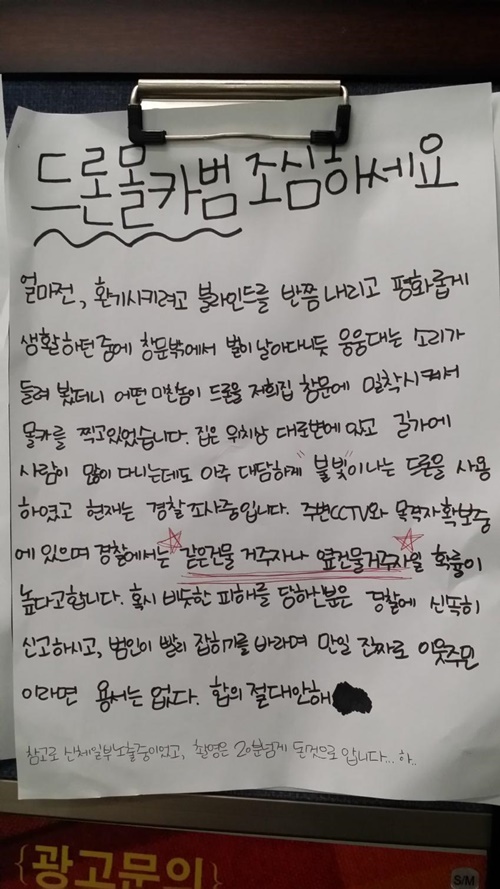 드론몰카범 조심하세요
얼마전, 환기시키려고 블라인드를 반쯤 내리고 평화롭게
생활하던중에 창문밖에서 벌이 날아다니듯 웅웅대는 소리가
들려 봤더니 어떤 미친놈이 드론을 저희집 창문에 밀착시켜서
몰카를 찍고있었습니다. 집은 위치상 대로변에 있고 길가에
사람이 많이 다니는데도 아주 대담하게 "불빛"이나는 드론을 사용
하였고 현재는 경찰조사중입니다. 주변CCTV와 목격자확보중
에 있으며 경찰에서는 ☆같은건물 거주자나 옆건물거주자☆일 확률이
높다고합니다. 혹시 비슷한 피해를 당하신분은 경찰에 신속히
신고하시고, 범인이 빨리 잡히기를 바라며 만일 진짜로 이웃주민
이라면 용서는 없다. 합의 절대안해
참고로 신체일부노출중이었고, 촬영은 20분넘게 된것으로 압니다... 하..
{광고문의}
S/M